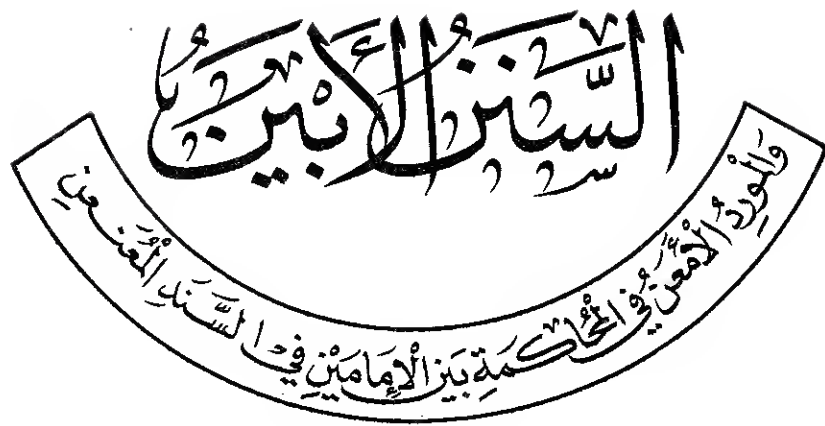 السَّنَنُ الأَبْيَنُ
وَالمَوْرِدُ الأَمْعَنُ فِي المُحَاكَمَةِ بَيْنَ الإِمَامَيْنِ فِي السَّنَدِ المُعَنْعَنِ